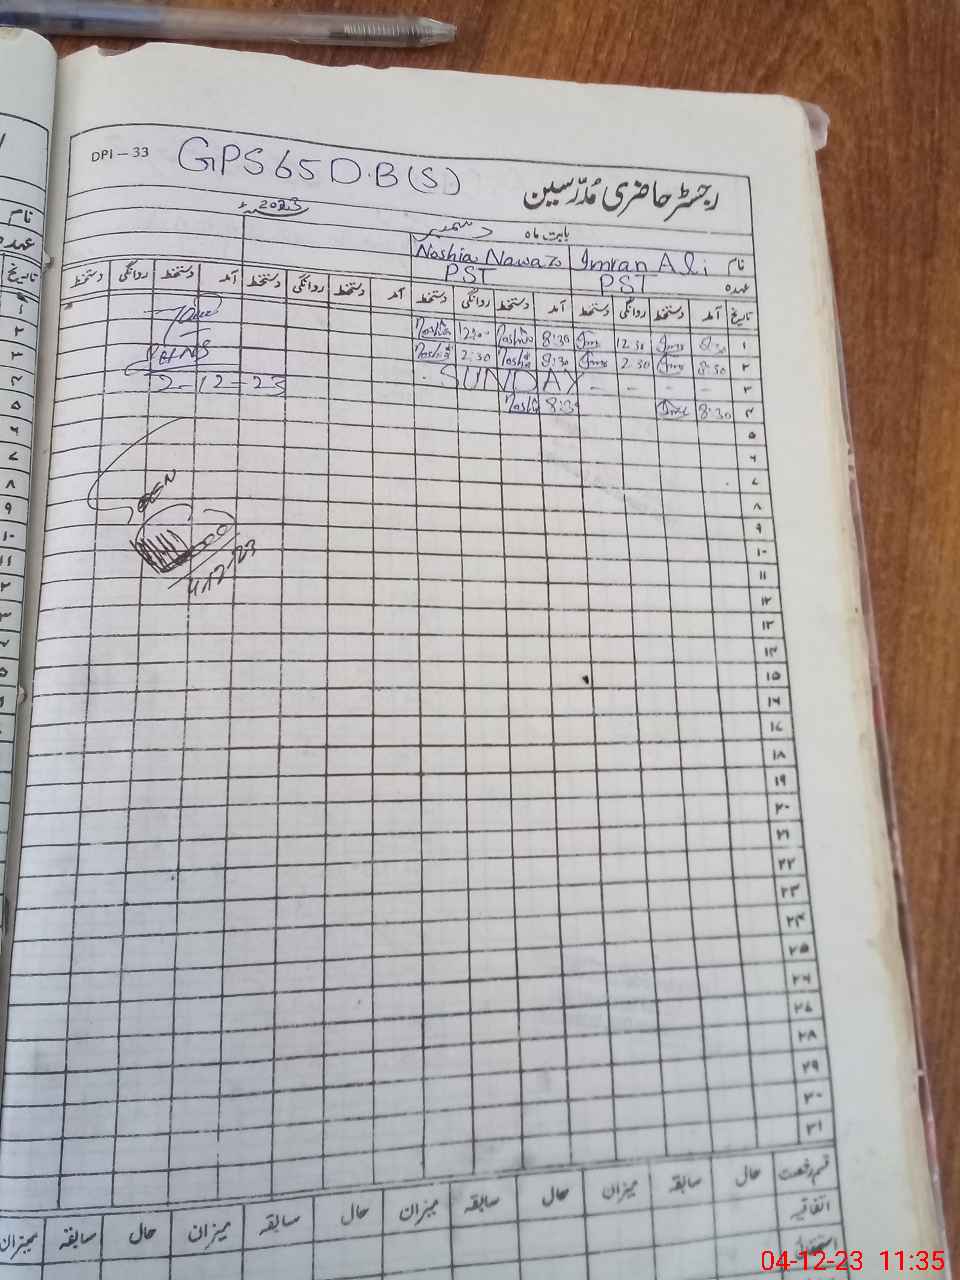 DPI - 33
GPS 65 D.B(S)
رجسٹر حاضری مُدرّسین
بابت ماہ دسمبر 2023ء
نام Imran Ali Noshia Nawaz
عہدہ PST PST
تاریخ آمد دستخط روانگی دستخط آمد دستخط روانگی دستخط آمد دستخط روانگی دستخط آمد دستخط روانگی دستخط
۱ 8:30 12:30 8:30 Noshia 12:30 Noshia
۲ 8:30 2:30 8:30 Noshia 2:30 Noshia
۳ SUNDAY
۴ 8:30 8:30
۵
۶
۷
۸
۹
۱۰
۱۱
۱۲
۱۳
۱۴
۱۵
۱۶
۱۷
۱۸
۱۹
۲۰
۲۱
۲۲
۲۳
۲۴
۲۵
۲۶
۲۷
۲۸
۲۹
۳۰
۳۱
2-12-23
4-12-23
قسم رخصت حال سابقہ میزان حال سابقہ میزان حال سابقہ میزان حال سابقہ میزان
اتفاقیہ
نام
عہدہ
تاریخ
04-12-23 11:35